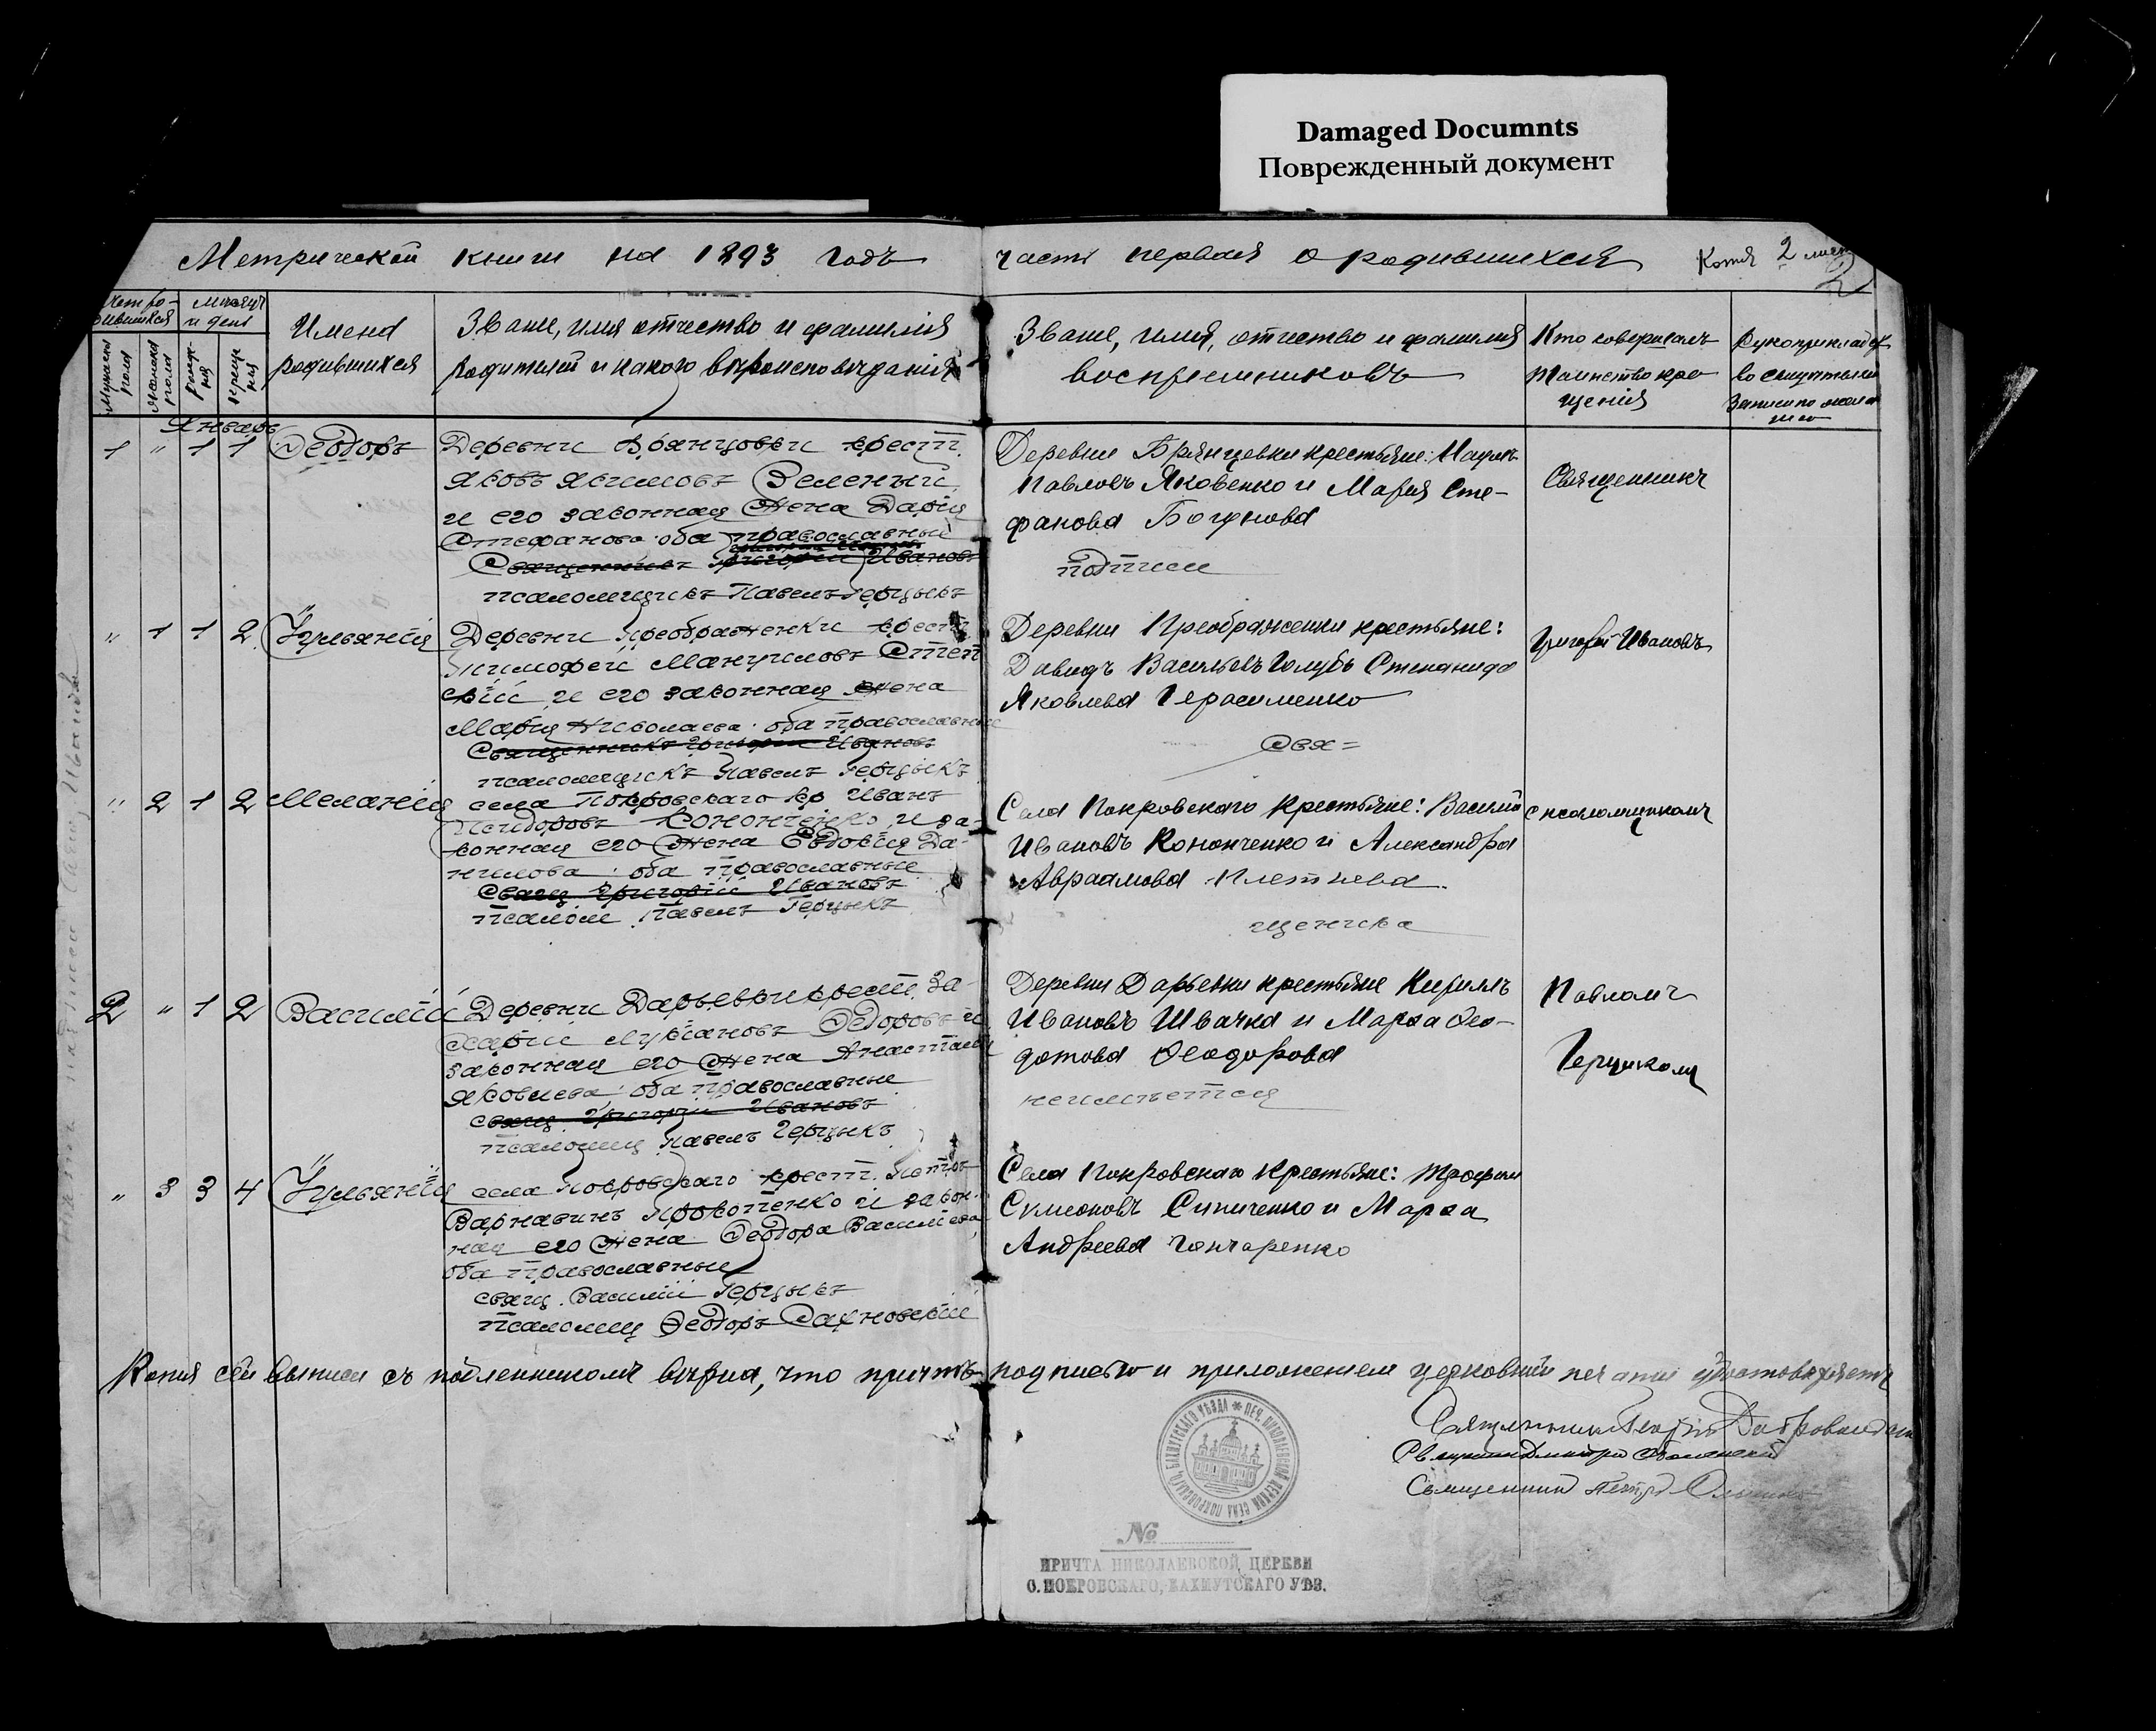 Damaged Documnts
Поврежденный документ
Метрической книги на 1893 годъ
часть первая о родившихся
Копія 2 лист
2
Счет ро-
дившихся
Мѣсяцъ
и день
Мужеска
пола
Женска
пола
рожде-
нія
креще
нія
Имена
родившихся
Званіе, имя отчество и фамилія
родителей и какого вѣроисповѣданія
Званіе, имя, отчество и фамилія
воспріемниковъ
Кто совершалъ
таинство кре-
щенія
Рукоприкладст
во свидѣтелей
записи по жела
нію
Январь
1 " 1 1 Ѳеодоръ
Деревни Брянцовки крест.
Яковъ Якимовъ Зеленый
и его законная жена Дарія
Стефанова оба православные
Священникъ Григорій Ивановъ
псаломщикъ Павелъ Герцыкъ
Деревни Брянцевки крестьяне:
Павловъ Яковенко и Марія Сте-
фанова Богунова
подписи
Священникъ
" 1 1 2 Іуліанія
Деревни Преображенки крест.
Тимофей Мануиловъ Степ
скій и его законная жена
Марія Николаева оба православные
Священникъ Григорій Ивановъ
псаломщикъ Павелъ Герцыкъ
Деревни Преображенки крестьяне:
Давидъ Васильевъ Голубъ Степанида
Яковлева Герасименко
Свя=
Григорій Ивановъ
" 2 1 2 Меланія
села Покровскаго кр Иванъ
Исидоровъ Кононченко и за-
конная его жена Евдокія Да-
нилова оба православные
Свящ Григорій Ивановъ
псалом Павелъ Герцыкъ
Села Покровскаго крестьяне: Василій
Ивановъ Кононченко и Александра
Авраамова Плетнева
щеника
с псаломщикомъ
2 " 1 2 Василій
Деревни Дарьевки крест. За-
харій Лукіановъ Ѳедоровъ и
законная его жена Анастасія
Яковлева оба православные
свящ. Григорій Ивановъ
псаломщ Павелъ Герцыкъ
Деревни Дарьевки крестьяне Кириллъ
Ивановъ Швачка и Марѳа Ѳео-
дотова Ѳеодорова
неимѣется
Павломъ
Герцыкомъ
" 3 3 4 Іуліанія
села Покровскаго крест.
Варнавинъ Прокопенко и закон-
ная его жена Ѳеодора Василіева
оба православные
свящ. Василій Герцыкъ
псаломщ Ѳеодоръ Сахновскій
Села Покровскаго крестьяне: Трофим
Симеоновъ Синиченко и Марѳа
Андреева Гончаренко
Копія сей выписи съ подлинникомъ вѣрна, что причтъ подписью и приложеніем церковной печати удостовѣряетъ
Священникъ
Священникъ Дмитрій
Священникъ Петръ
ПЕЧ. НИКОЛАЕВСКОЙ ЦЕРКВИ СЕЛА ПОКРОВСКАГО, БАХМУТСКАГО УѢЗДА
№
ПРИЧТА НИКОЛАЕВСКОЙ ЦЕРКВИ
С. ПОКРОВСКАГО, БАХМУТСКАГО УѢЗ.